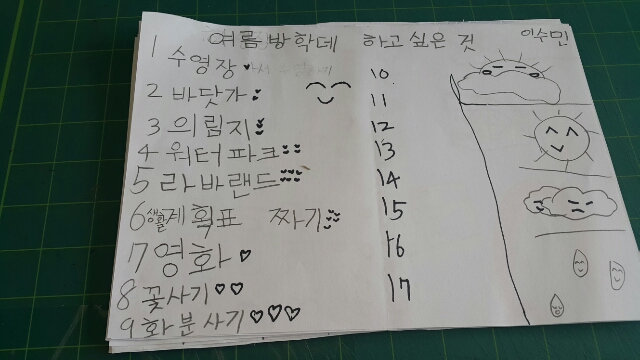 여름방학데 하고싶은 것
이수민
1 수영장
2 바닷가
3 의림지
4 워터파크
5 라바랜드
6 생활계획표 짜기
7 영화
8 꽃사기
9 화분사기
10
11
12
13
14
15
16
17